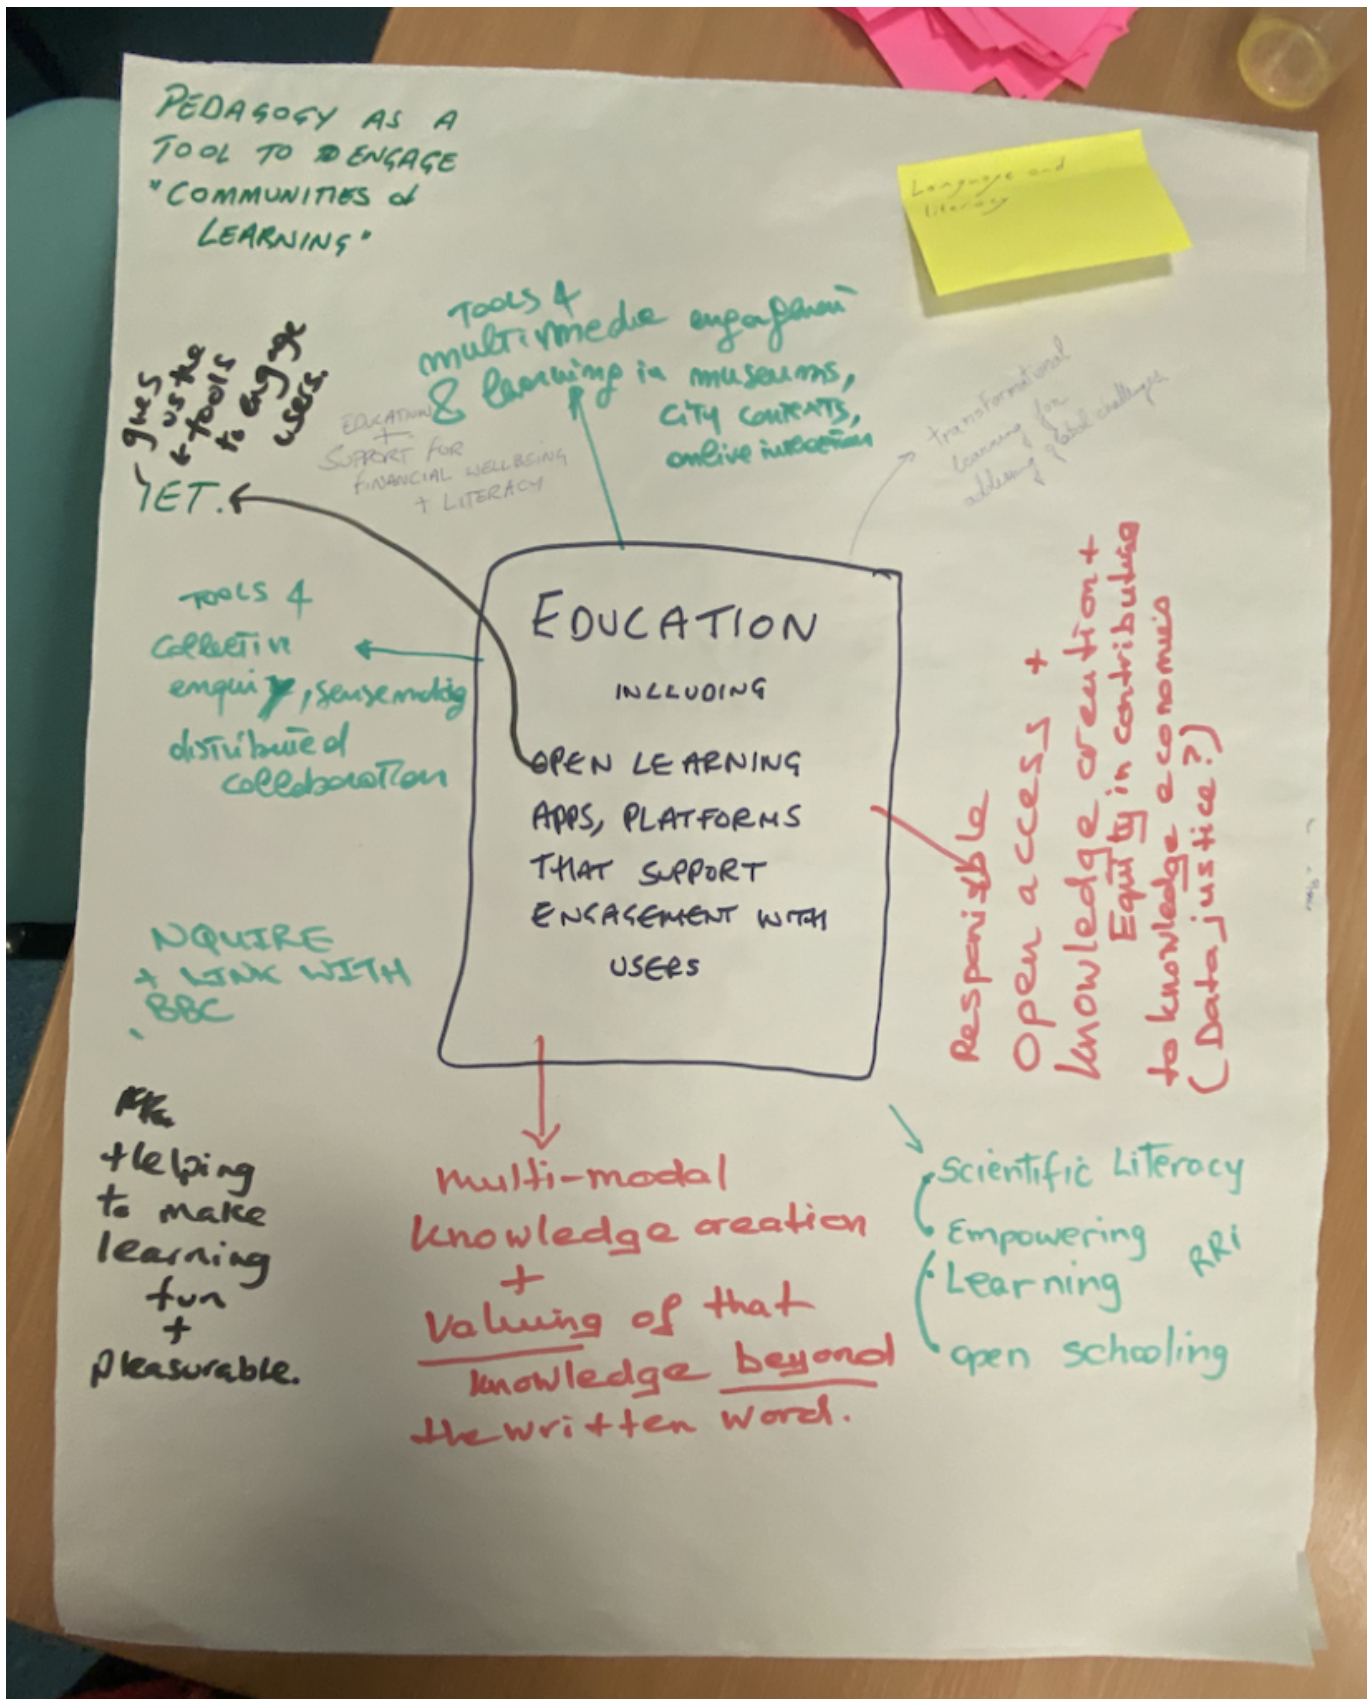 PEDAGOGY AS A
TOOL TO ENGAGE
"COMMUNITIES of
LEARNING"
Language and
literacy
TOOLS 4
multimedia engagement
& learning in museums,
city contexts,
online interaction
gives
us the
tools
to engage
users.
IET.
EDUCATION
+
SUPPORT FOR
FINANCIAL WELLBEING
+ LITERACY
transformational
learning for
addressing global challenges
TOOLS 4
collective
enquiry, sensemaking
distributed
collaboration
EDUCATION
INCLUDING
OPEN LEARNING
APPS, PLATFORMS
THAT SUPPORT
ENGAGEMENT WITH
USERS
Responsible
Open access +
knowledge creation +
Equity in contributing
to knowledge economies
(Data justice?)
NQUIRE
+ LINK WITH
BBC
Helping
to make
learning
fun
+
pleasurable.
multi-modal
knowledge creation
+
Valuing of that
knowledge beyond
the written word.
Scientific Literacy
Empowering
Learning
open schooling
RRi